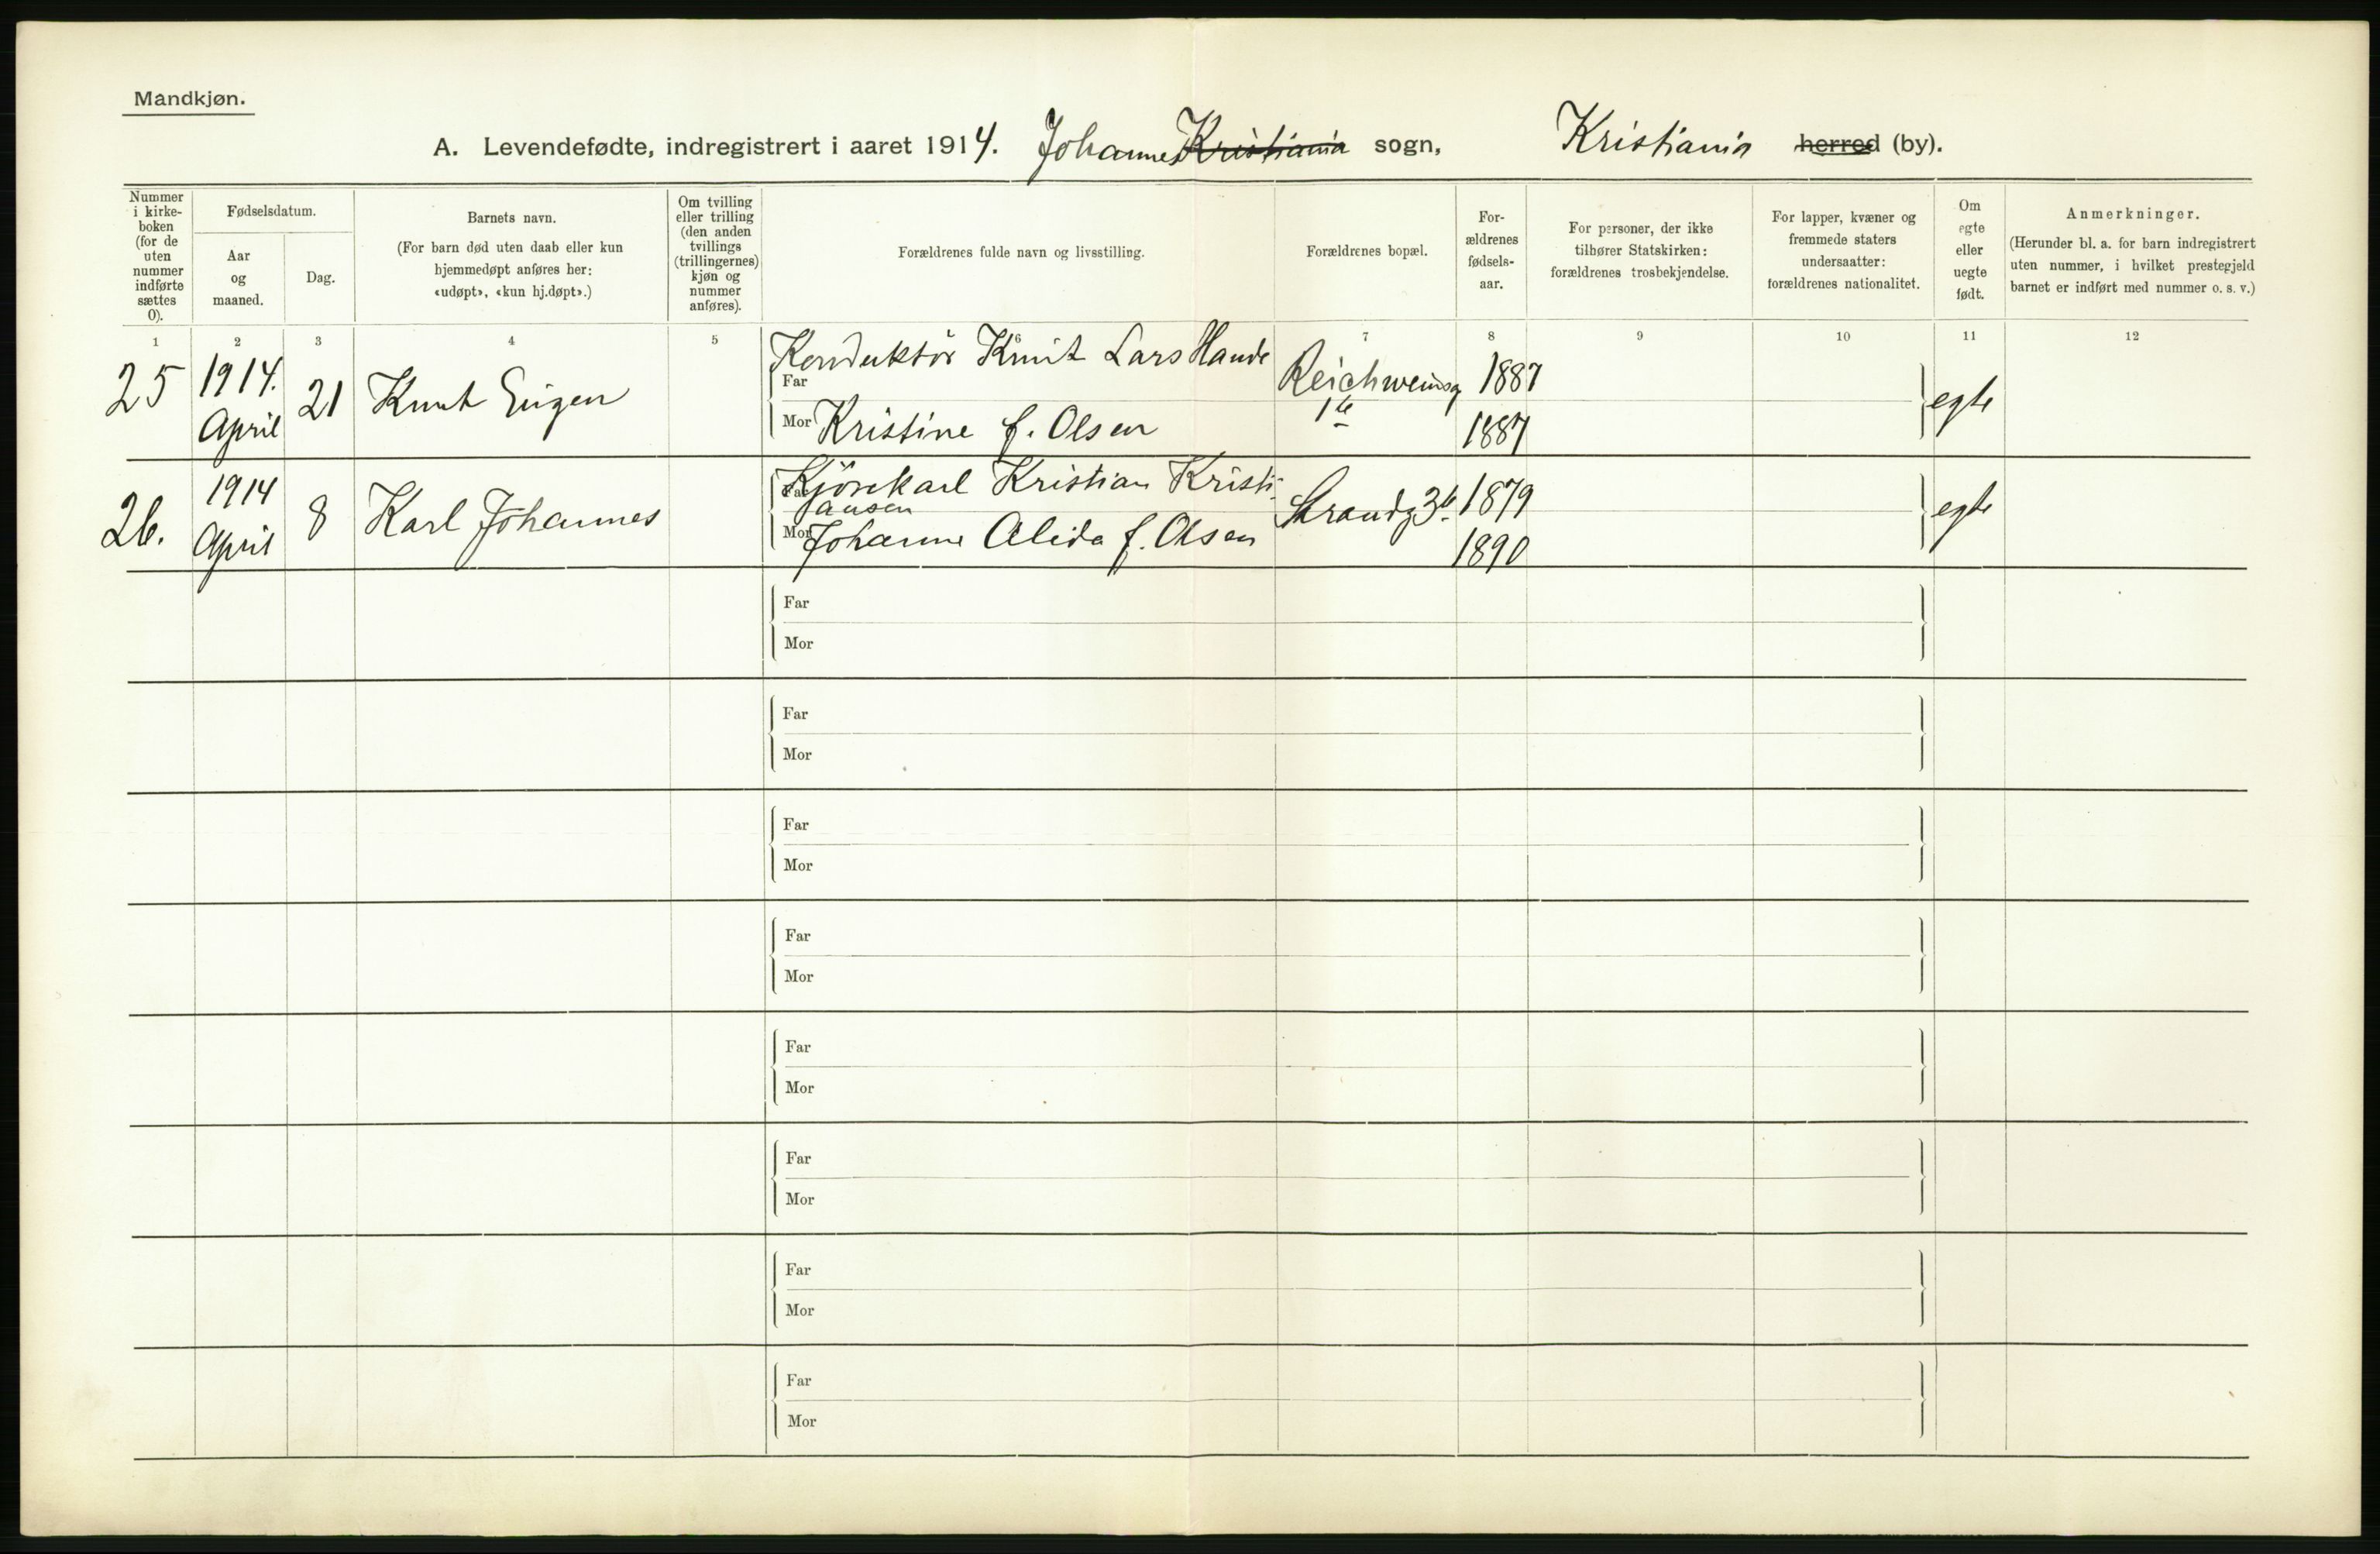 Mandkjøn.
A. Levendefødte, indregistrert i aaret 1914. Johannes Kristiania sogn, Kristiania herred (by).
Nummer i kirke-boken (for de uten nummer indførte sættes 0).
Fødselsdatum.
Aar og maaned.
Dag.
Barnets navn.
(For barn død uten daab eller kun hjemmedøpt anføres her: «udøpt», «kun hj.døpt».)
Om tvilling eller trilling (den anden tvillings (trillingernes) kjøn og nummer anføres).
Forældrenes fulde navn og livsstilling.
Forældrenes bopæl.
For-ældrenes fødsels-aar.
For personer, der ikke tilhører Statskirken: forældrenes trosbekjendelse.
For lapper, kvæner og fremmede staters undersaatter: forældrenes nationalitet.
Om egte eller uegte født.
Anmerkninger.
(Herunder bl. a. for barn indregistrert uten nummer, i hvilket prestegjeld barnet er indført med nummer o. s. v.)
1 2 3 4 5 6 7 8 9 10 11 12
25 1914. April 21 Knut Eugen
Far Konduktör Knut Lars Hande
Mor Kristine f. Olsen
Reichweinsg 1b
1887
1887
egte
26. 1914 April 8 Karl Johannes
Far Kjörekarl Kristian Kristi-
ansen
Mor Johanne Alida f. Olsen
Strandg 3b
1879
1890
egte
Far
Mor
Far
Mor
Far
Mor
Far
Mor
Far
Mor
Far
Mor
Far
Mor
Far
Mor